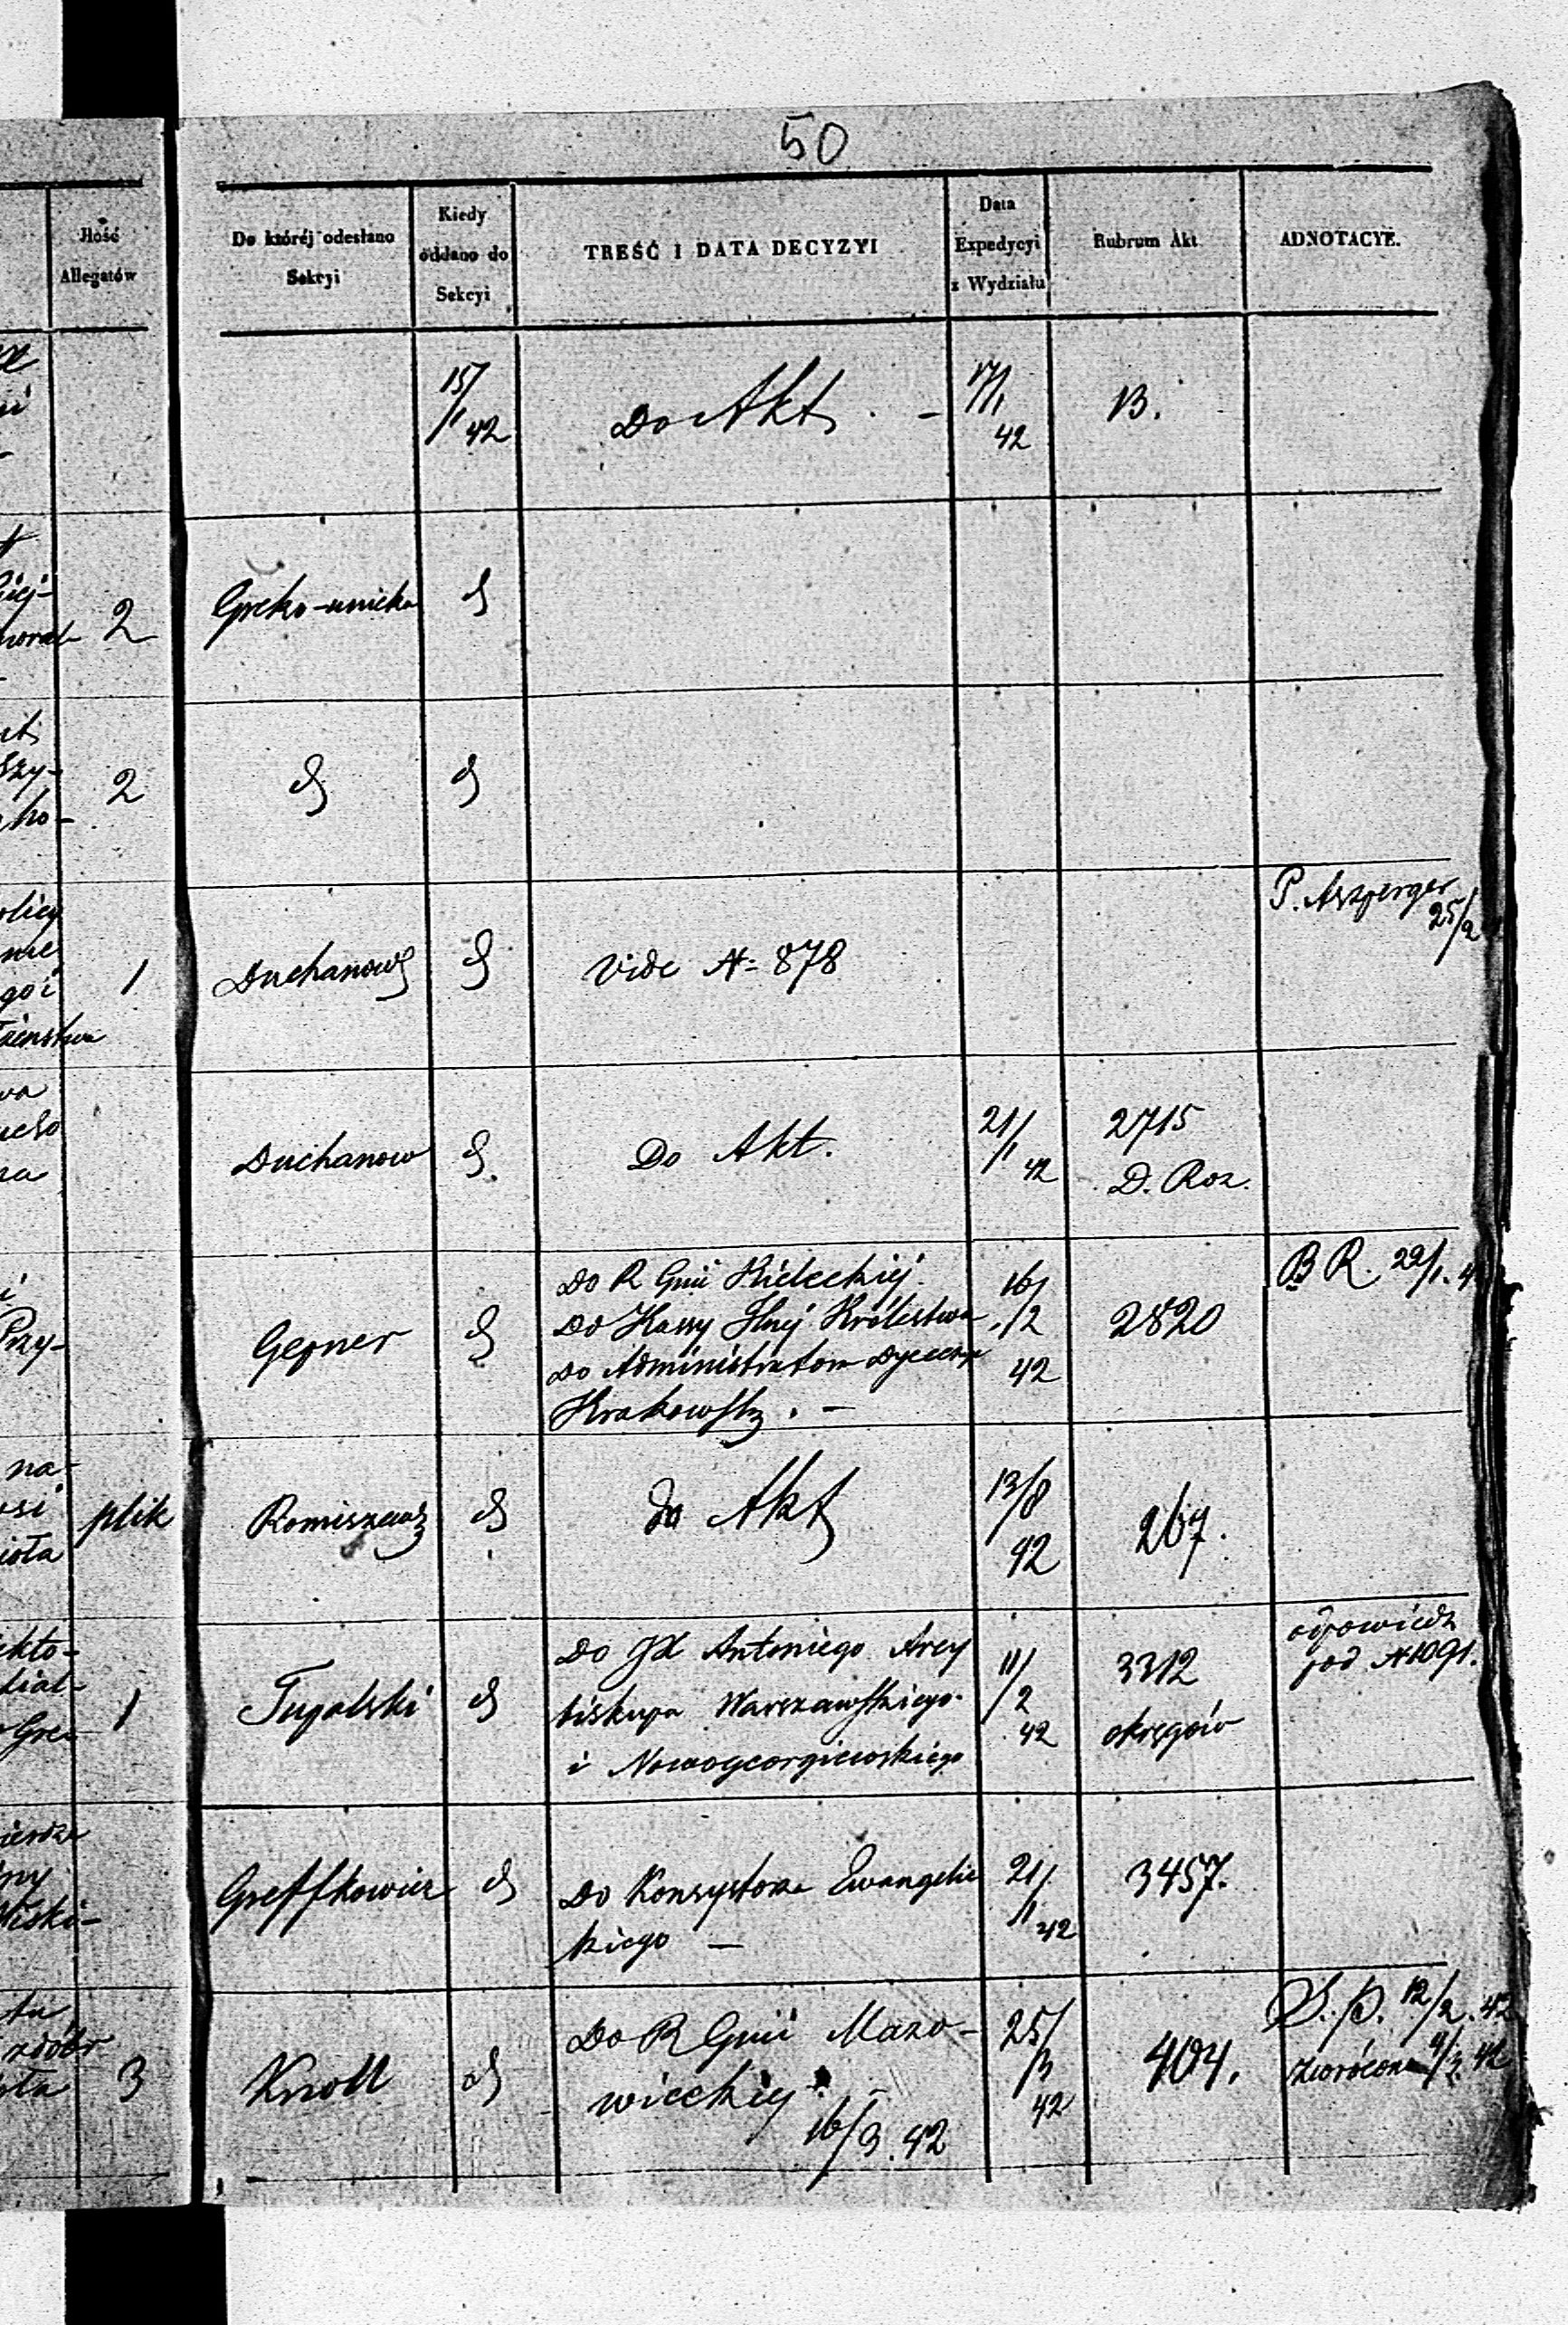 50
Ilość
Allegatów
Do któréj odesłano
Sekcyi
Kiedy
oddano do
Sekcyi
TREŚĆ I DATA DECYZYI
Data
Expedycyi
z Wydziału
Rubrum Akt
ADNOTACYE.
15/1 42
Do Akt. -
17/1 42
B.
2
Greko-unicka
2
1
Duchanows
Vide N= 878
P. Aszperger
25/2
Duchanow
Do Akt.
21/1 42
2715
D. Roz.
Gepner
Do R Gnii Kieleckiej.
Do Kassy Głnej Królestwa
Do Administratora Dyecezyi
Krakowsk. -
16/2 42
2820
B R. 22/1.
plik
Romiszews
do Akt
13/8 42
267.
1
Tupalski
Do JX Antoniego Arcy
biskupa Warszawskiego
i Nowogeorgiewskiego
11/2 42
3312
okręgów
odpowiedz
pod N 1091.
Greffkowicz
Do Konsystorza Ewangelic
kiego -
21/1 42
3457.
3
Knoll
Do R Gnii Mazo-
wieckiej -
16/3. 42
25/3 42
404.
S. P. 12/2. 42
zwrócona 11/3 42